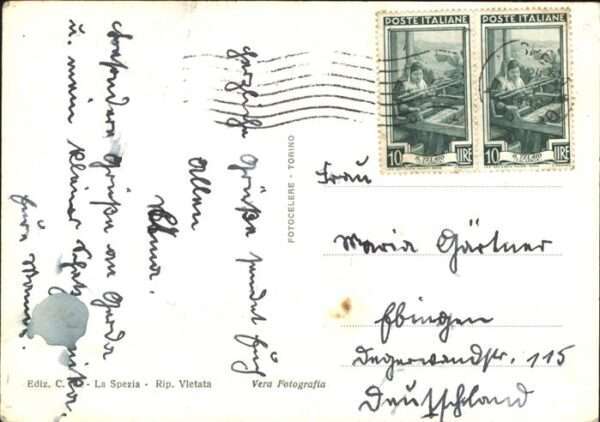 POSTE ITALIANE
POSTE ITALIANE
10 LIRE
10 LIRE
herzliche Grüße sendet Euch
Allen
Alma.
besondere Grüße an Gerda
u. mein kleiner Schatz
Eure Mama.
FOTOCELERE - TORINO
Frau
Maria Gärtner
Ebingen
Degerwandstr. 115
Deutschland
Ediz. C. - La Spezia - Rip. Vietata
Vera Fotografia